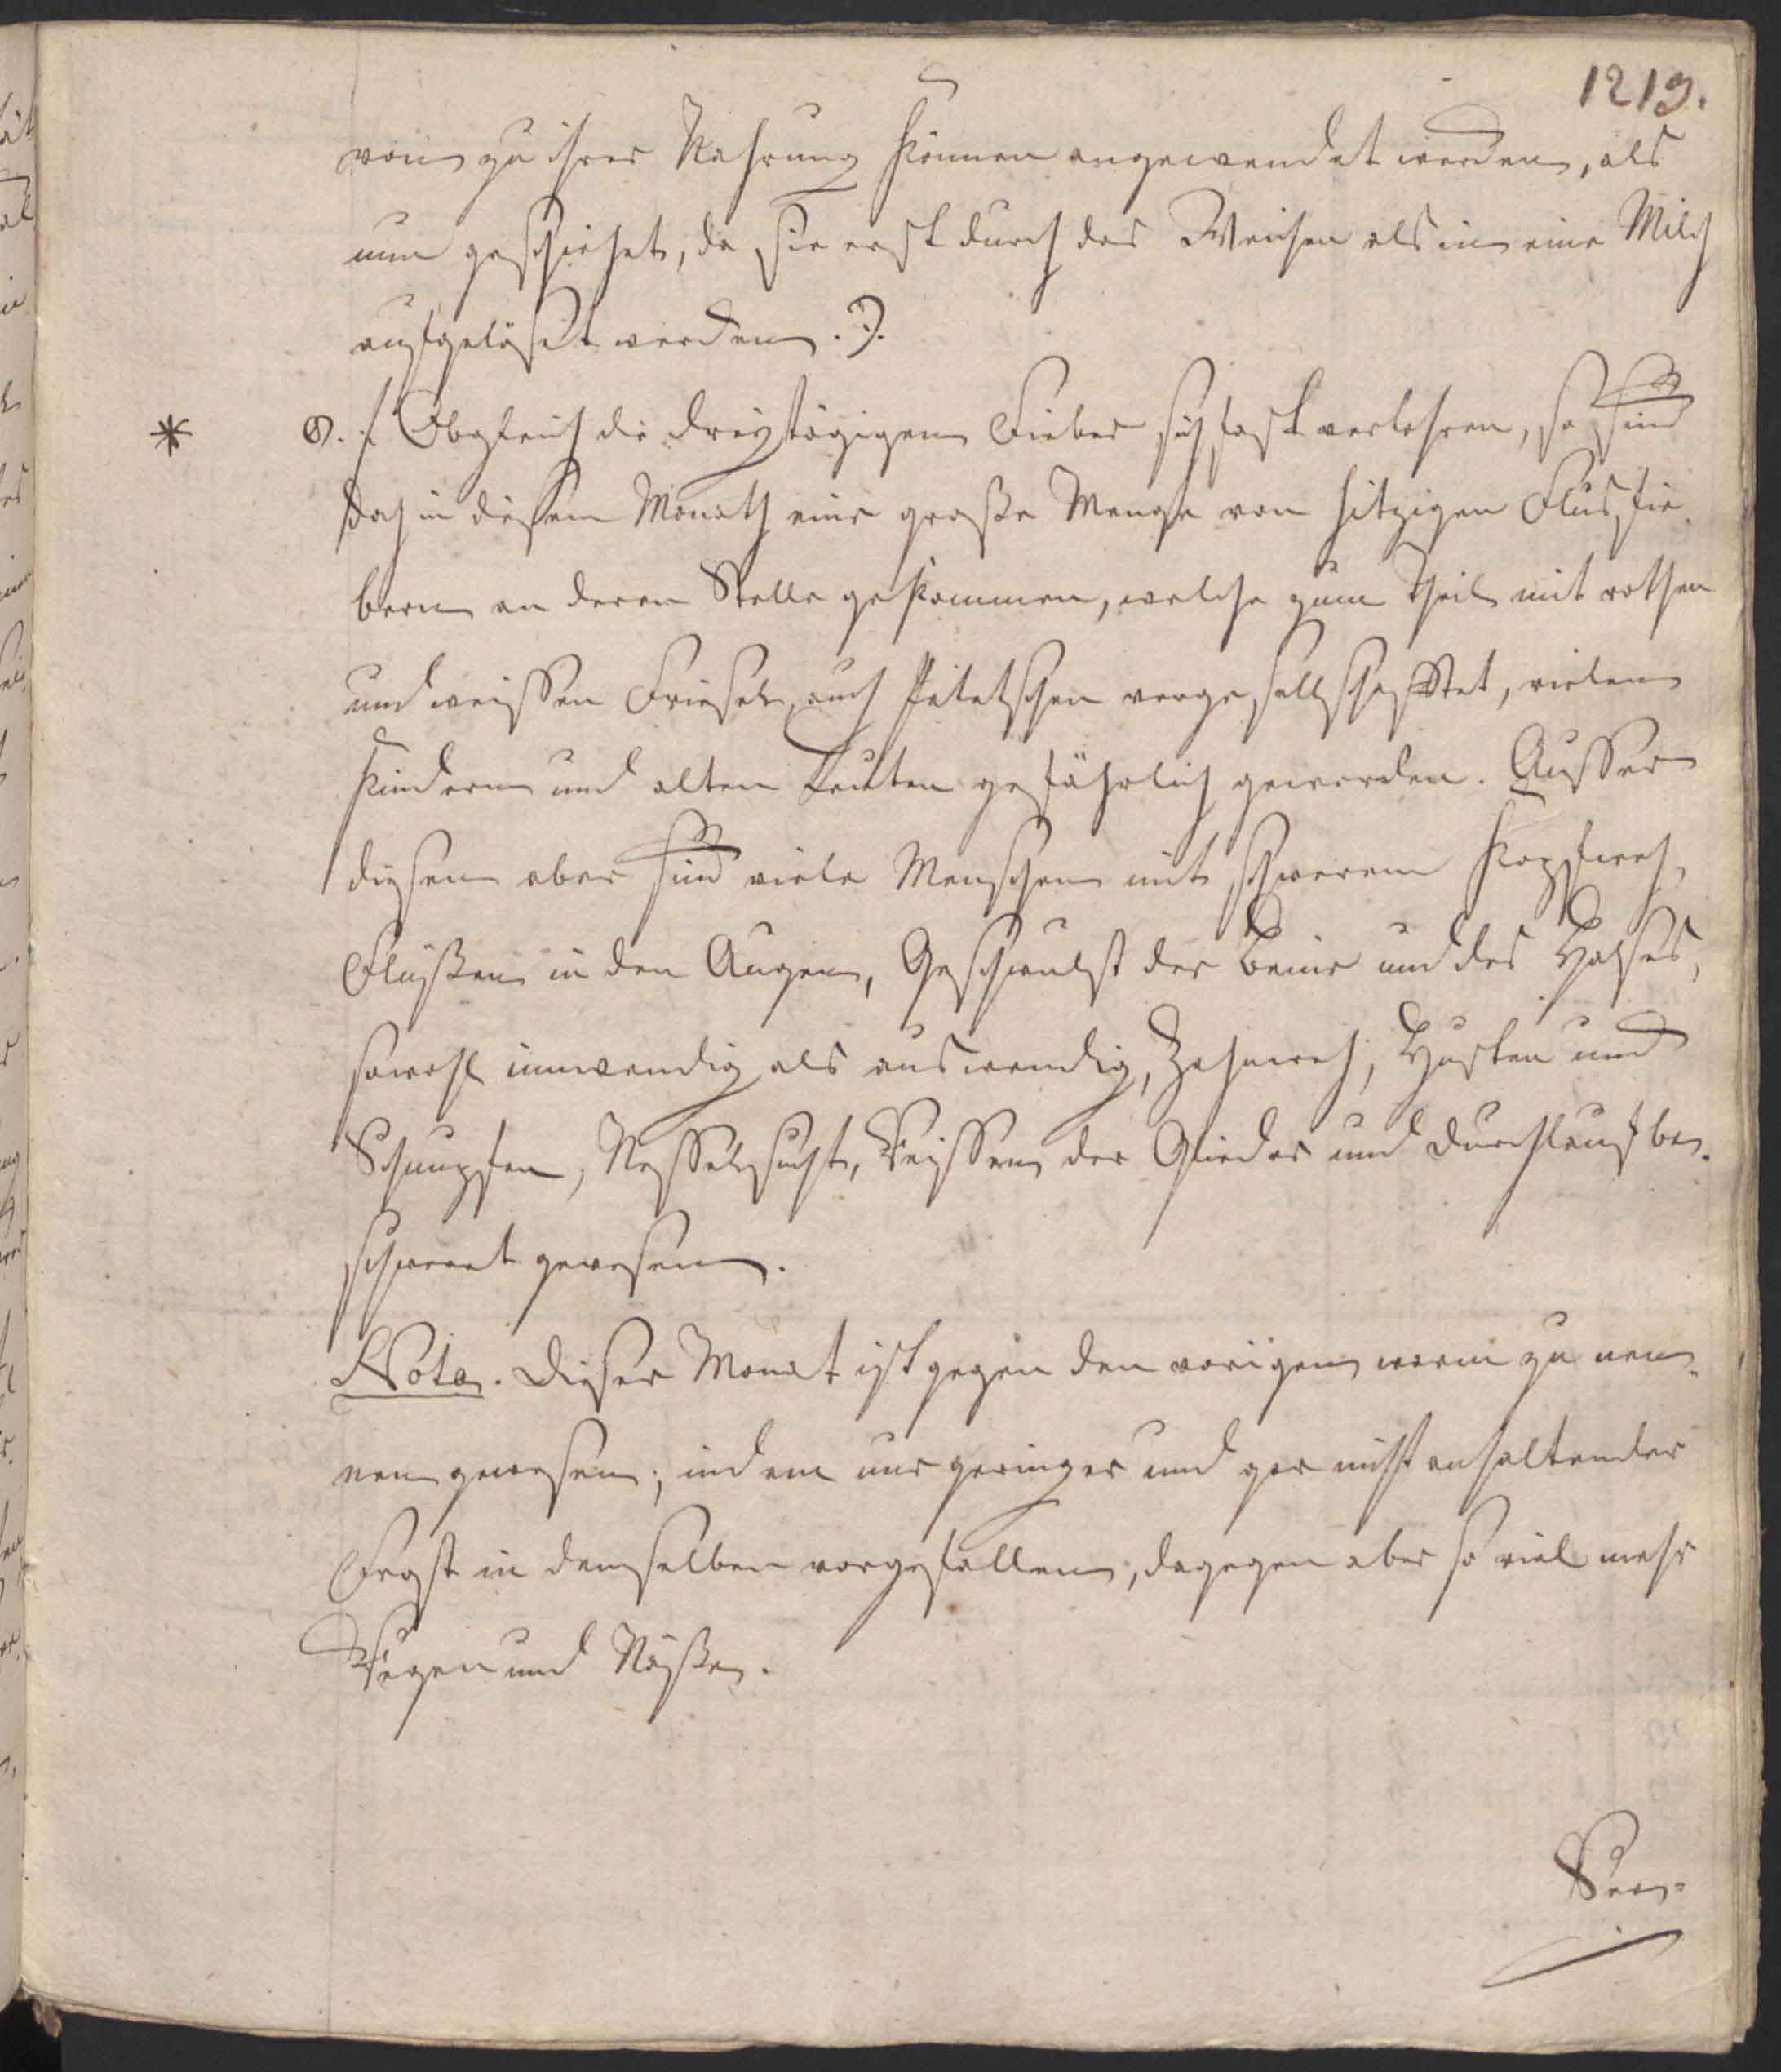 1219.
von zu ihrer Nahrung können angewendet werden, als
nun geschiehet, da sie erst durch das Weichen als in eine Milch
aufgelöset werden. ).
* 8. f Obgleich die dreytägigen Fieber sich fast verlohren, so sind
doch in diesem Monath eine große Menge von hitzigen Flusfie-
bern an deren Stelle gekommen, welche zum Theil mit rothen
und weissen Friesel, auch Petetschen vergesellschafftet, vielen
Kindern und alten Leuten gefährlich geworden. Ausser
diesen aber sind viele Menschen mit schwerem Kopfweh,
Flüßen in den Augen, Geschwulst der Beine und des Halses,
sowohl innwendig als auswendig, Zahnweh, Husten und
Schnupfen, Nesselsucht, Reissen der Glieder und Durchlauf be-
schweret gewesen.
Nota. Dieser Monat ist gegen den vorigen warm zu nen-
nen gewesen; indem nur geringer und gar nicht anhaltender
Frost in demselben vorgefallen; dagegen aber so viel mehr
Regen und Näße.